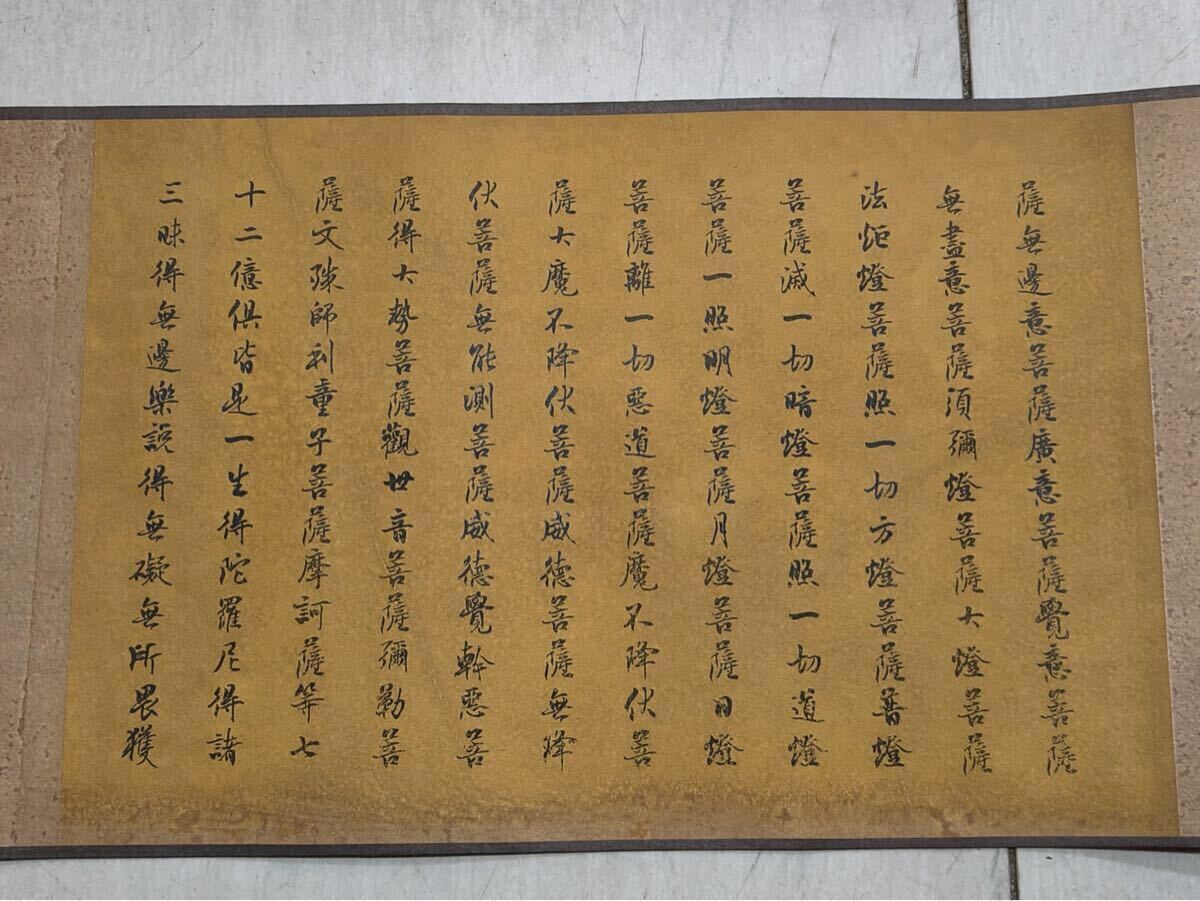 薩無邊意菩薩廣意菩薩覺意菩薩
無盡意菩薩須彌燈菩薩大燈菩薩
法炬燈菩薩照一切方燈菩薩普燈
菩薩滅一切暗燈菩薩照一切道燈
菩薩一照明燈菩薩月燈菩薩日燈
菩薩離一切惡道菩薩魔不降伏菩
薩大魔不降伏菩薩威德菩薩無降
伏菩薩無能測菩薩威德覺幹惡菩
薩得大勢菩薩觀世音菩薩彌勒菩
薩文殊師利童子菩薩摩訶薩等七
十二億俱皆是一生得陀羅尼得諸
三昧得無邊樂說得無礙無所畏獲